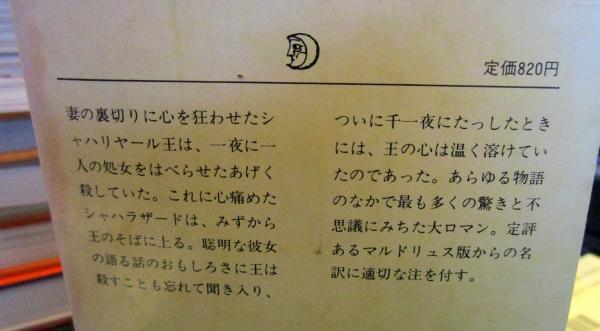 定価820円
妻の裏切りに心を狂わせたシ
ャハリヤール王は、一夜に一
人の処女をはべらせたあげく
殺していた。これに心痛めた
シャハラザードは、みずから
王のそばに上る。聡明な彼女
の語る話のおもしろさに王は
殺すことも忘れて聞き入り、
ついに千一夜にたっしたとき
には、王の心は温く溶けてい
たのであった。あらゆる物語
のなかで最も多くの驚きと不
思議にみちた大ロマン。定評
あるマルドリュス版からの名
訳に適切な注を付す。